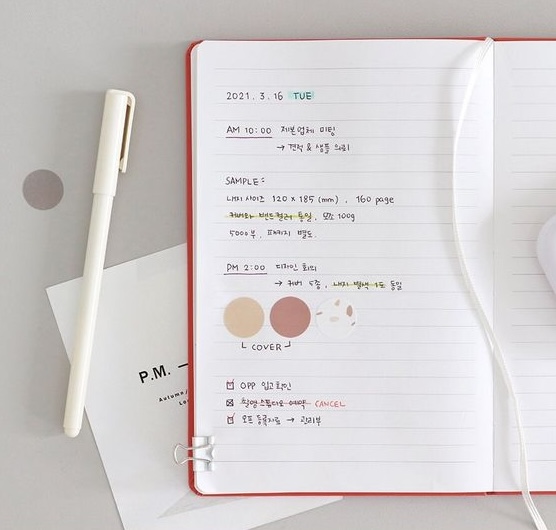 2021. 3. 16 TUE
AM 10:00 제본업체 미팅
→ 견적 & 샘플 의뢰
SAMPLE:
내지 사이즈 120 x 185 (mm), 160 page
커버와 밴드컬러 통일, 모조 100g
5000부, 패키지 별도.
PM 2:00 디자인 회의
→ 커버 5종, 내지 별색 1도 동일
COVER
OPP 입고 확인
촬영 스튜디오 예약 CANCEL
오프 등록자료 → 관리부
P.M. —
Autumn/